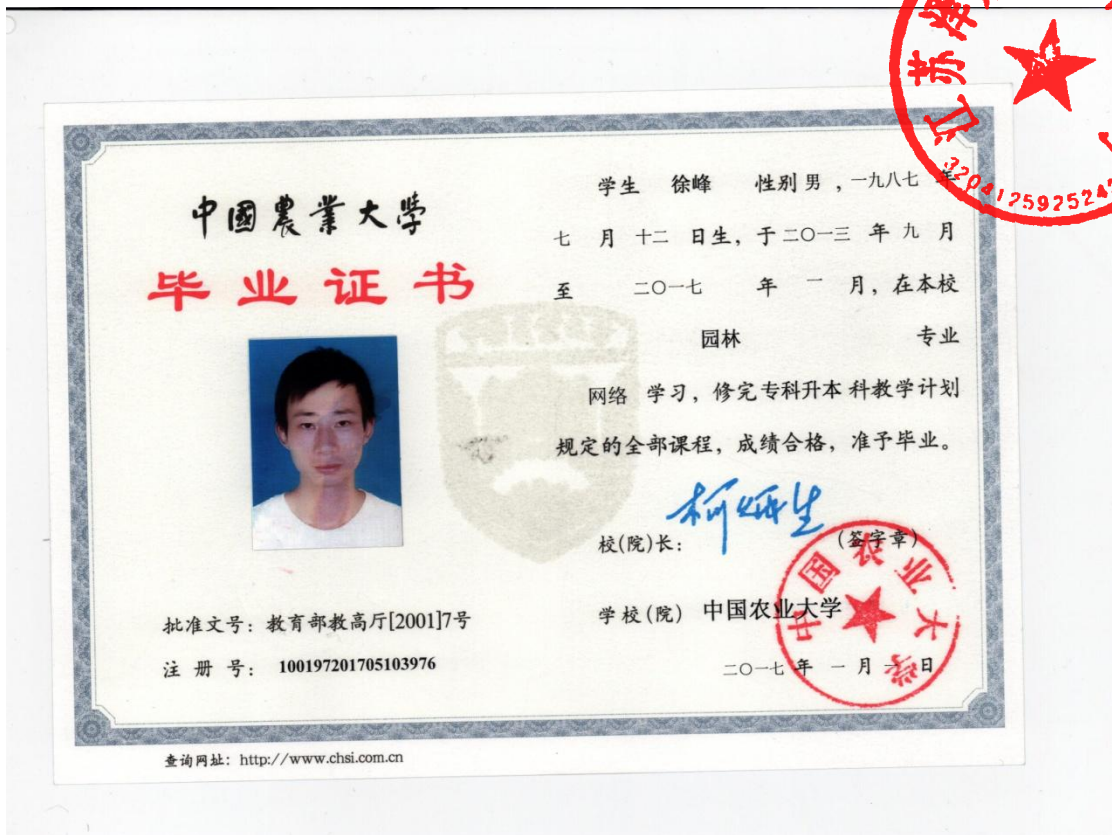 中國農業大學
毕业证书
批准文号：教育部教高厅[2001]7号
注 册 号： 100197201705103976
学生 徐峰 性别 男 ，一九八七 年
七 月 十二 日生，于 二〇一三 年 九 月
至 二〇一七 年 一 月，在本校
园林 专业
网络 学习，修完 专科升本 科教学计划
规定的全部课程，成绩合格，准予毕业。
校(院)长： (签字章)
学校(院) 中国农业大学
二〇一七 年 一 月 一 日
中国农业大学
查询网址：http://www.chsi.com.cn
江苏